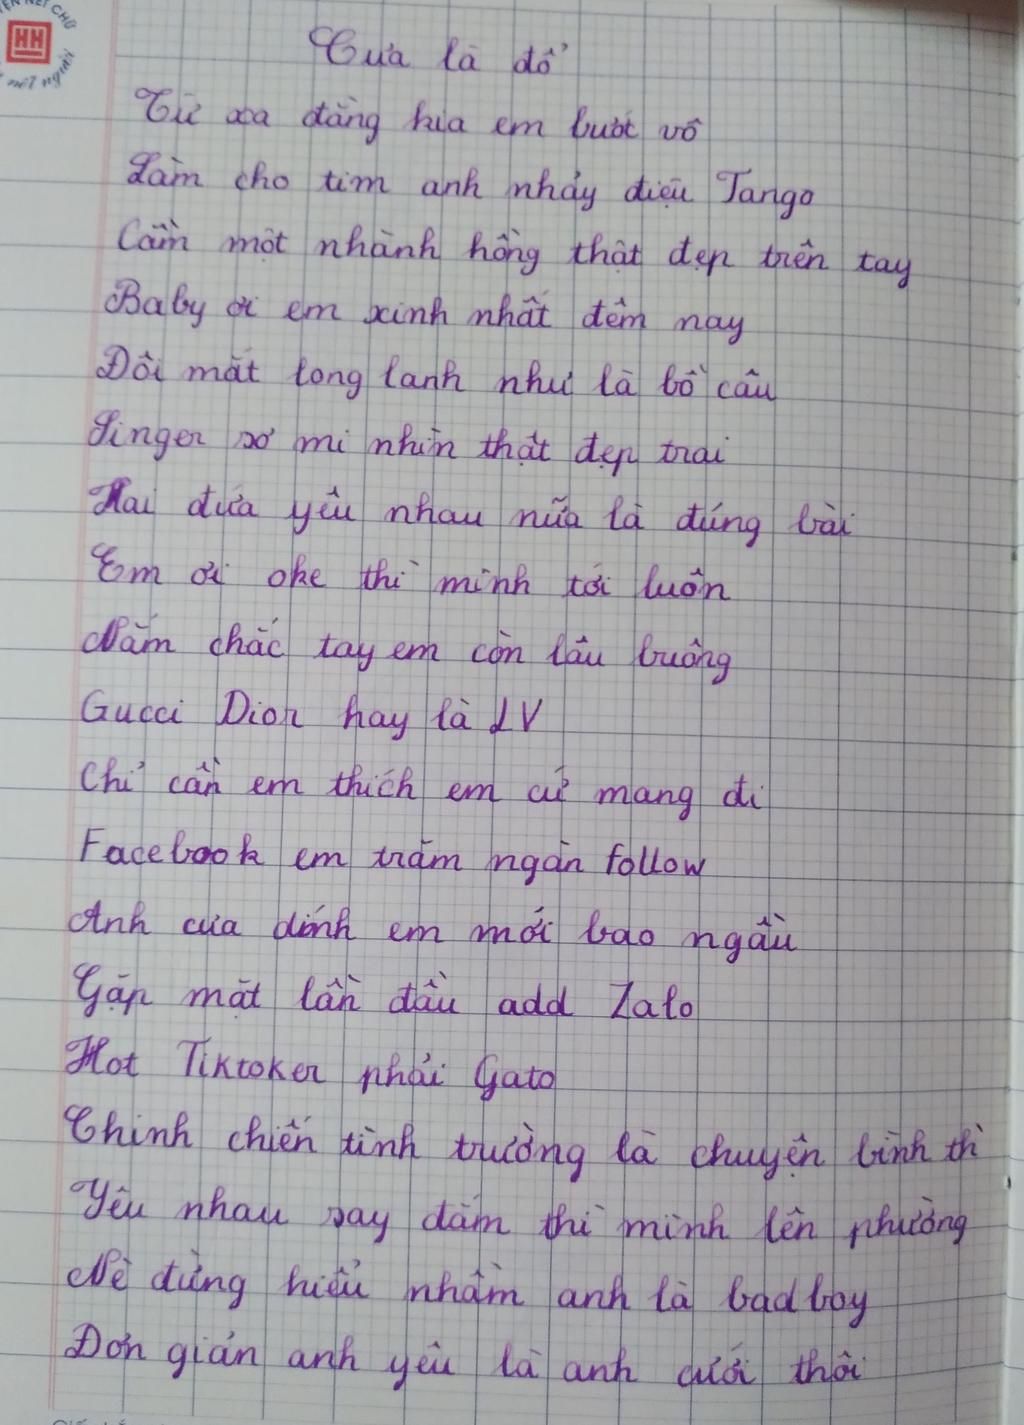 YỆN NÉT CHỮ
HH
một người
Cưa là đổ
Từ xa đằng kia em bước vô
Làm cho tim anh nhảy điệu Tango
Cầm một nhành hồng thật đẹp trên tay
Baby ơi em xinh nhất đêm nay
Đôi mắt long lanh như là bồ câu
Singer sơ mi nhìn thật đẹp trai
Hai đứa yêu nhau nữa là đúng bài
Em ơi oke thì mình tới luôn
Nắm chắc tay em còn lâu buông
Gucci Dior hay là LV
Chỉ cần em thích em cứ mang đi
Facebook em trăm ngàn follow
Anh cưa dính em mới bao ngầu
Gặp mặt lần đầu add Zalo
Hot Tiktoker phải Gato
Chinh chiến tình trường là chuyện bình thì
Yêu nhau say đắm thì mình lên phường
Nè đừng hiểu nhầm anh là bad boy
Đơn giản anh yêu là anh cưới thôi